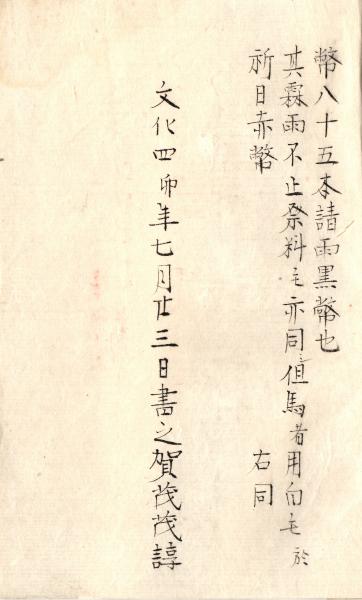 幣八十五本請雨黒幣也
其霖雨不止祭料毛亦同但馬者用白毛於
祈日赤幣　右同
文化四卯年七月廿三日書之賀茂茂諄